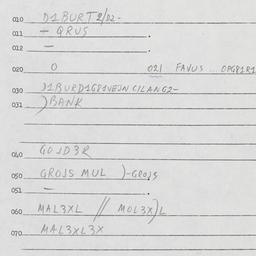 010 D1BURT2/D2-
011 - GRUS .
012 - .
020 0 021 FAVUS
030 D1BURD1G81VEJN CILANG2-
031 )BANK
040 GOJD3R
050 GROJS MUL )-GROJS
051 - .
060 MAL3XL // MOL3X)L
070 MAL3XL3X